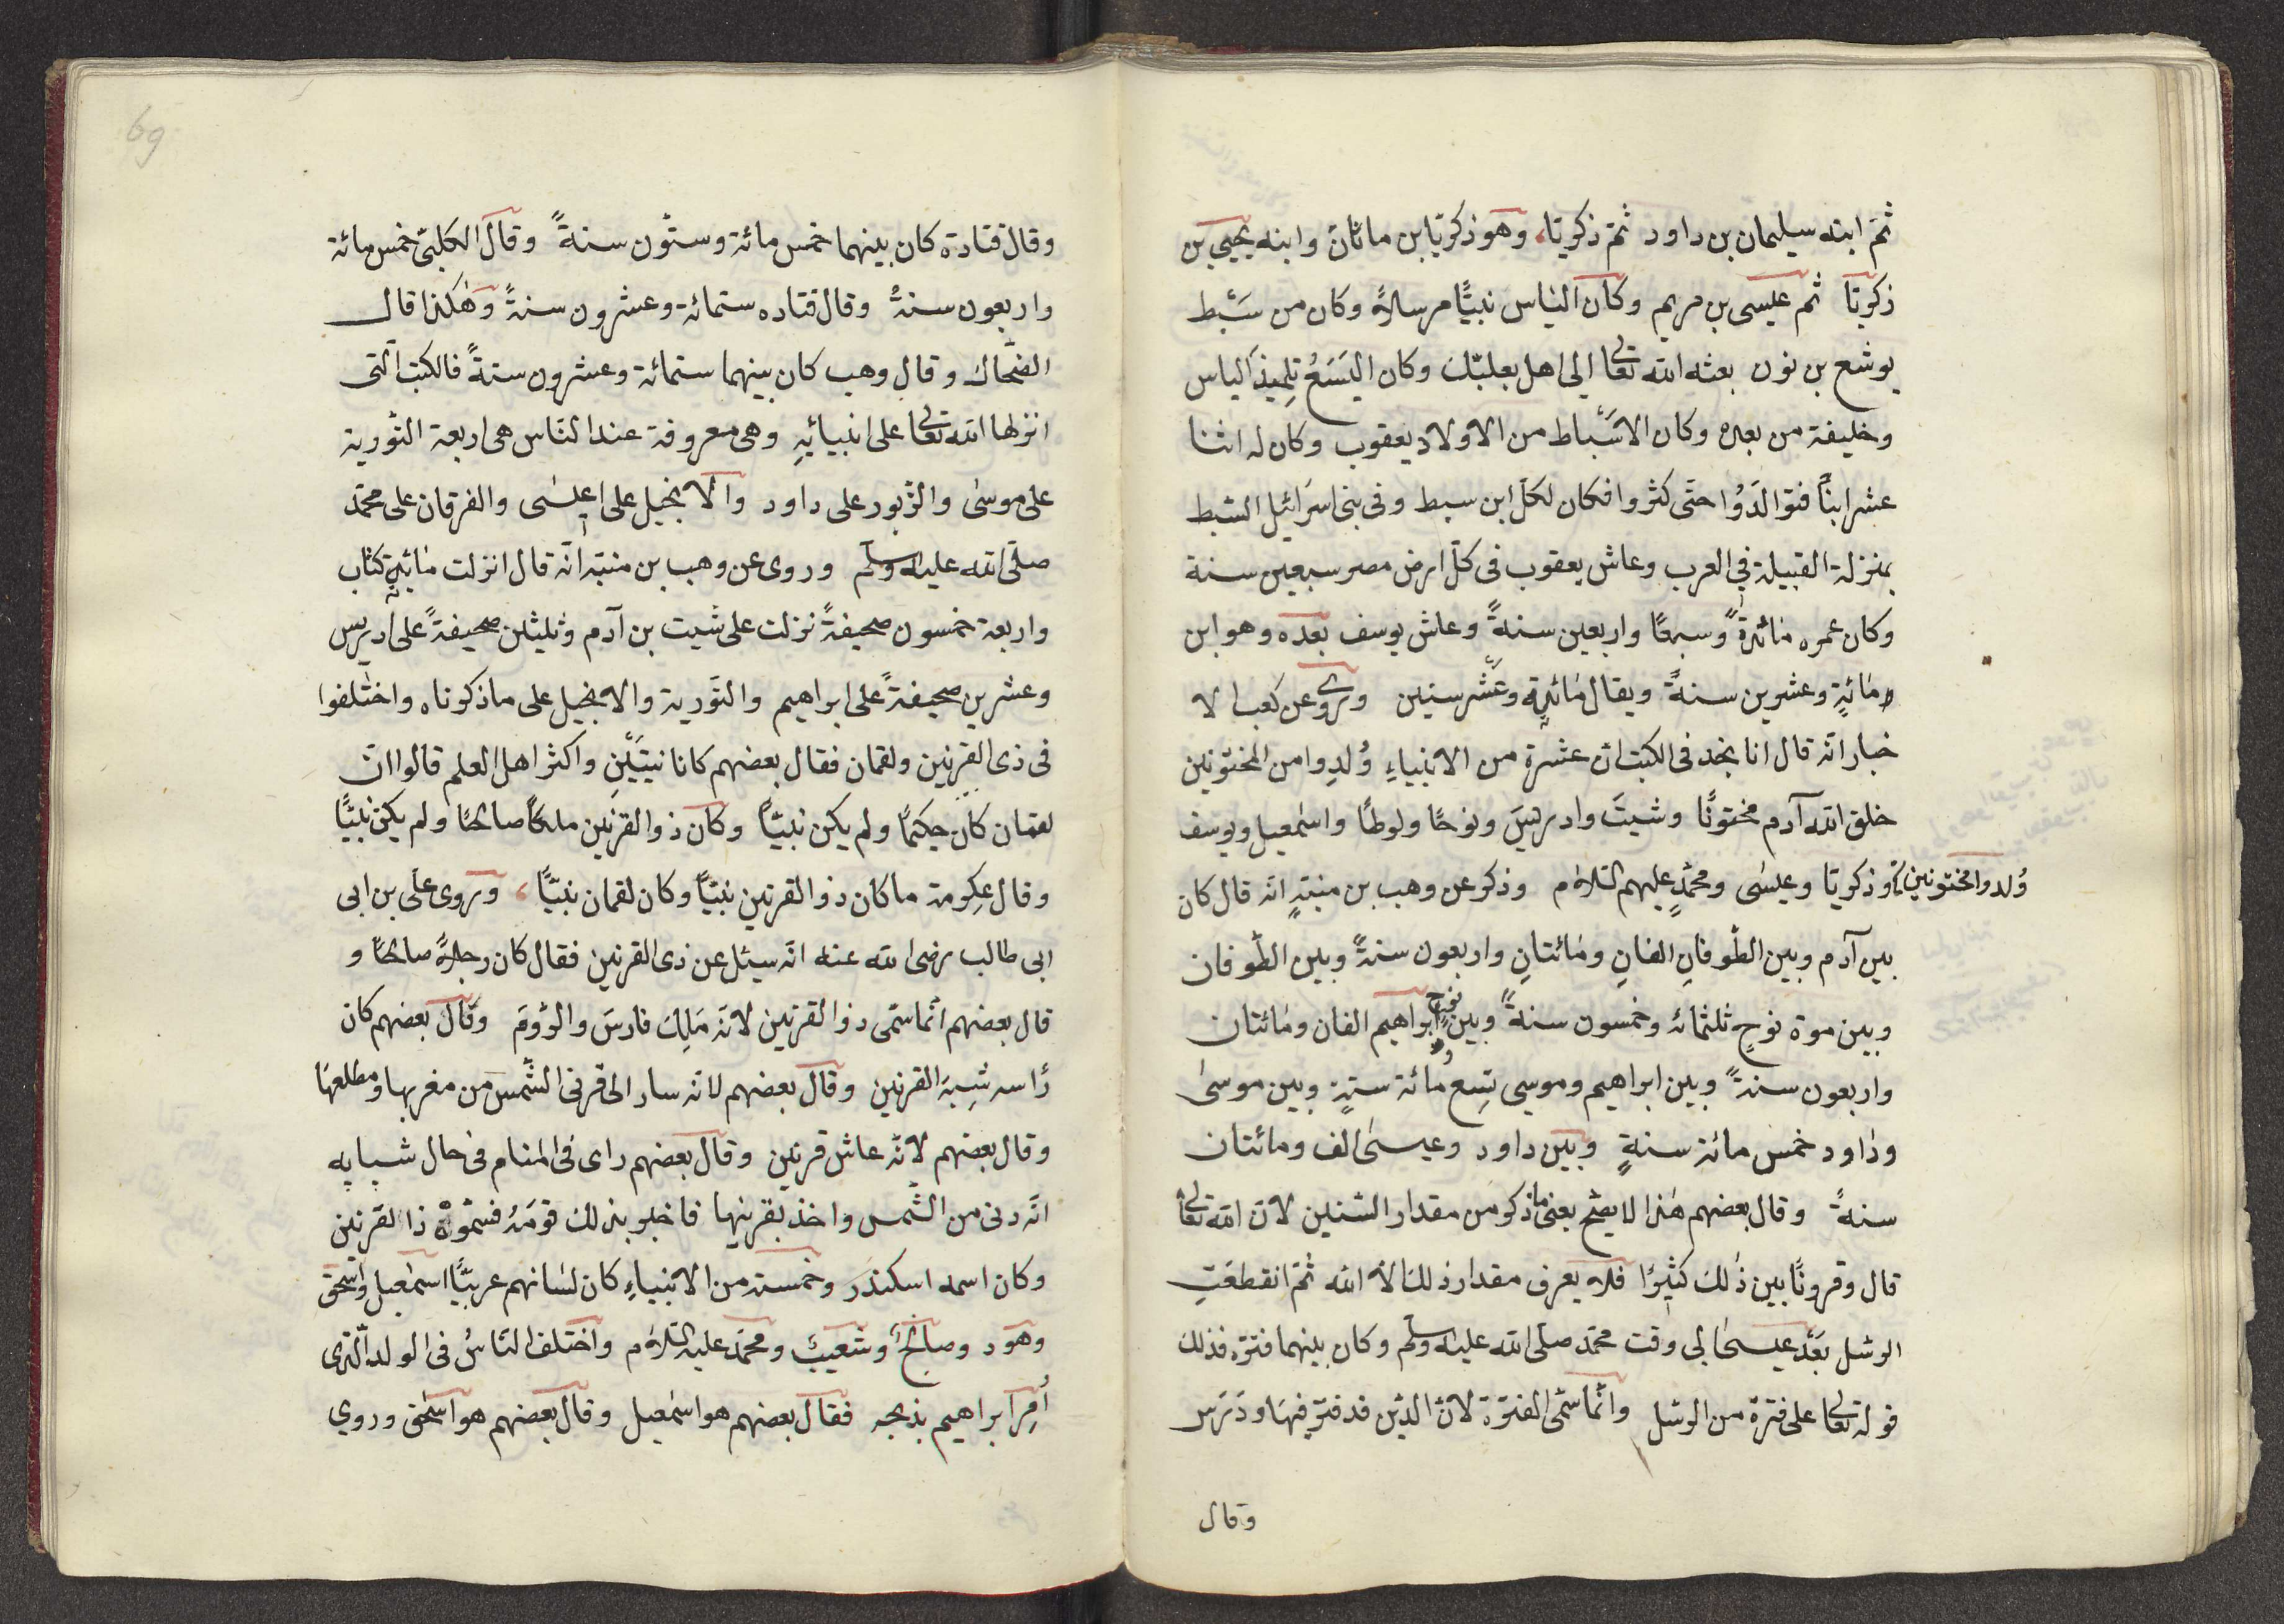 ثمّ ابنه سليمان بن داود ثمّ ذكريّا، وهو ذكريّا بن ماثان وابنه يحيى بن
ذكريّا ثم عيسى بن مريم وكان الياس نبيًّا مرسلاً وكان من سَبْط
يوشع بن نون بعثه الله تعالى الى اهل بعلبّك وكان اليَسَعُ تِلميذ الياس
وخليفة من بعده وكان الاَسْباط من الاولاد يعقوب وكان له اثنا
عشر ابناً فتوالَدُوا حتّى كثروا فكان لكلّ ابن سبط وفى بنى اسرائيل السّبط
بمنزلة القبيلة في العرب وعاش يعقوب فى كلّ ارض مصر سبعين سنة
وكان عمره مائةً وسبعًا واربعين سنةً وعاش يوسف بعده وهو ابن
مائةٍ وعشرين سنةً ويقال مائةٍ وعَشْر سنين وروى عن كعب الا
خبار انّه قال انا نجد فى الكتب انّ عشرة من الانبياءِ وُلدِوا من المختونين
خلق الله آدم مختونًا وشيتَ وادريسَ ونوحًا ولوطًا واسمعيل ويوسف
وُلدوا مختونين وذكريّا وعيسى ومحمّدٍ عليهم السّلام وذكر عن وهب بن منبّهٍ انّه قال كان
بين آدم وبين الطّوفانِ الفانِ ومائتانِ واربعون سنةً وبين الطّوفان
وبين موة نوحٍ ثلثمائه وخمسون سنةً وبين نوحٍ وابراهيم الفان ومائتان
واربعون سنةً وبين ابراهيم وموسى تِسع مائة سنةٍ وبين موسى
وداود خمس مائة سنةٍ وبين داود وعيسى الف ومائتان
سنةً وقال بعضهم هذا لا يصّح يعنى ما ذكر من مقدار السّنين لانّ الله تعالى
قال وقرونًا بين ذٰلك كثيرًا فلا يعرف مقدار ذلك الاّ الله ثمّ انقطعَتِ
الرسّل بَعْد عيسى الى وقت محمّد صلّى الله عليه وسلّم وكان بينهما فترة فذلك
قوله تعالى على فترة من الرسّل وانّما سمّى الفترة لانّ الدّين قد فترّ فيها ودَرَس
وقال
69
وقال قتادة كان بينهما خمس مائة وستّون سنةً وقال الكلبىّ خمس مائة
واربعون سنةً وقال قتاده ستمائة وعشرون سنةً وهٰكذا قال
الضحّاك وقال وهب كان بينهما ستمائة وعشرون سنةً فالكتب الّتى
انزلها الله تعالى على انبيائِهِ وهى معروفة عند النّاس هى اربعة التّورية
على موسى والزّبور على داود والانجيل على عيسى والفرقان على محمّد
صلّى الله عليه وسلّم وروى عن وهب بن منبّه انّه قال انزلت مائة كتاب
واربعة خمسون صحيفةً نزلت على شيت بن آدم وثلثين صحيفةً على ادريس
وعشرين صحيفةً على ابراهيم والتّورية والانجيل على ما ذكرناه واختلفوا
فى ذى القرنين ولقمان فقال بعضهم كانا نبيّينِ واكثر اهل العلم قالوا انّ
لقمان كان حكيمًا ولم يكن نبيًّا وكان ذو القرنين ملكًا صالحًا ولم يكن نبيًّا
وقال عِكرِمة ما كان ذو القرنين نبيًّا وكان لقمان نبيًّا، وروى علّى بن ابى
ابى طالب رضى الله عنه انّه سيئل عن ذى القرنين فقال كان رجلاً صالحًا و
قال بعضهم انّما سمّى ذو القرنين لانّه مَلِكَ فارسَ والرّومَ وقال بعضهم كان
رأسه شِبهَ القرنين وقال بعضهم لانّه سار الى قرنى الشّمس من مغربها ومطلعها
وقال بعضهم لانّه عاش قرنين وقال بعضهم راى فى المنام فى حال شبابِه
انّه دنى من الشّمس واخذ بقرنيها فاخبر بذلك قومَهُ فسمّوهُ ذا القرنين
وكان اسمه اسكندرَ وخمسة من الانبياءِ كان لسَانهم عربيًّا اسمعيل واسحق
وهود وصالحُ وشعيبَ ومحمّد عليه السّلام واختلف النّاسُ فى الولد الّذى
أُمِرَ ابراهيم بذبحه فقال بعضهم هو اسمعيل وقال بعضهم هو اسحٰق وروي